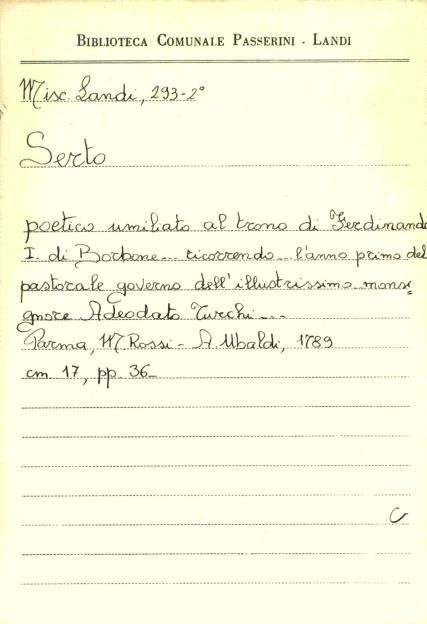 BIBLIOTECA COMUNALE PASSERINI - LANDI
Misc. Landi, 293-2°
Serto
poetico umiliato al trono di Ferdinando
I. di Borbone... ricorrendo... l'anno primo del
pastorale governo dell'illustrissimo monsi=
gnore Adeodato Turchi...
Parma, M. Rossi - A. Ubaldi, 1789
cm. 17, pp. 36
C